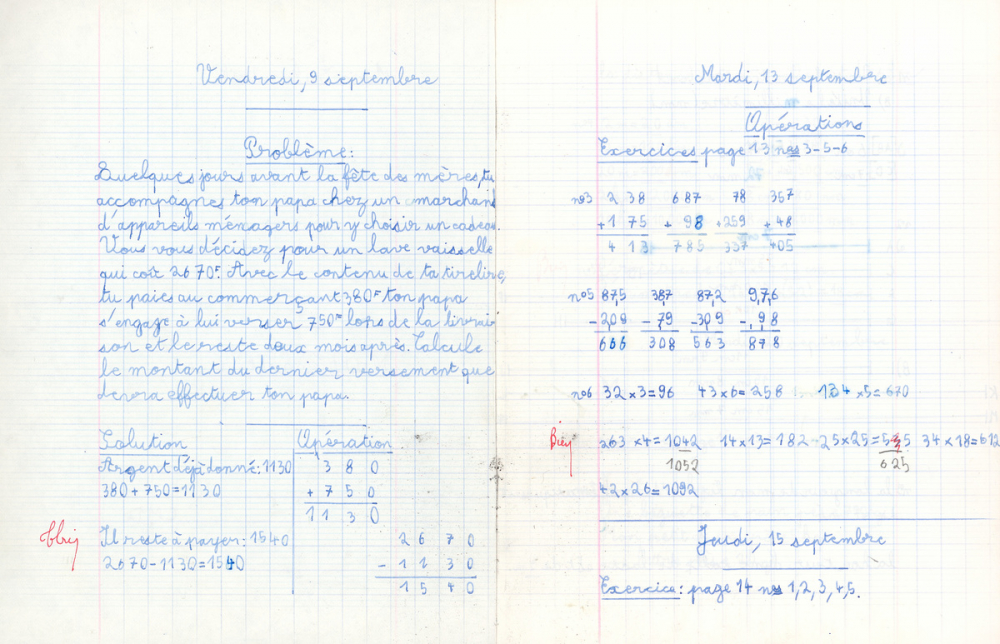 Vendredi, 9 septembre
Problème:
Quelques jours avant la fête des mères, tu
accompagnes ton papa chez un marchand
d'appareils ménagers pour y choisir un cadeau.
Vous vous décidez pour un lave vaisselle
qui coût 2670F. Avec le contenu de ta tirelire,
tu paies au commerçant 380F ton papa
s'engage à lui verser 750F lors de la livrai
son et le reste deux mois après. Calcule
le montant du dernier versement que
devra effectuer ton papa.
Solution
Opération
Argent déjà donné: 1130
380 + 750 = 1130
3 8 0
+ 7 5 0
1 1 3 0
Il reste à payer: 1540
2670 - 1130 = 1540
2 6 7 0
- 1 1 3 0
1 5 4 0
Mardi, 13 septembre
Opérations
Exercices page 13 nos 3-5-6
no3 238 687 78 357
+175 + 98 +259 + 48
413 785 337 405
no5 875 387 872 976
-209 - 79 -309 - 98
666 308 563 878
no6 32 x 3 = 96 43 x 6 = 258 134 x 5 = 670
Bien
263 x 4 = 1042 14 x 13 = 182 25 x 25 = 34 x 18 = 612
1052 625
42 x 26 = 1092
Jeudi, 15 septembre
Exercice: page 14 nos 1, 2, 3, 4, 5.